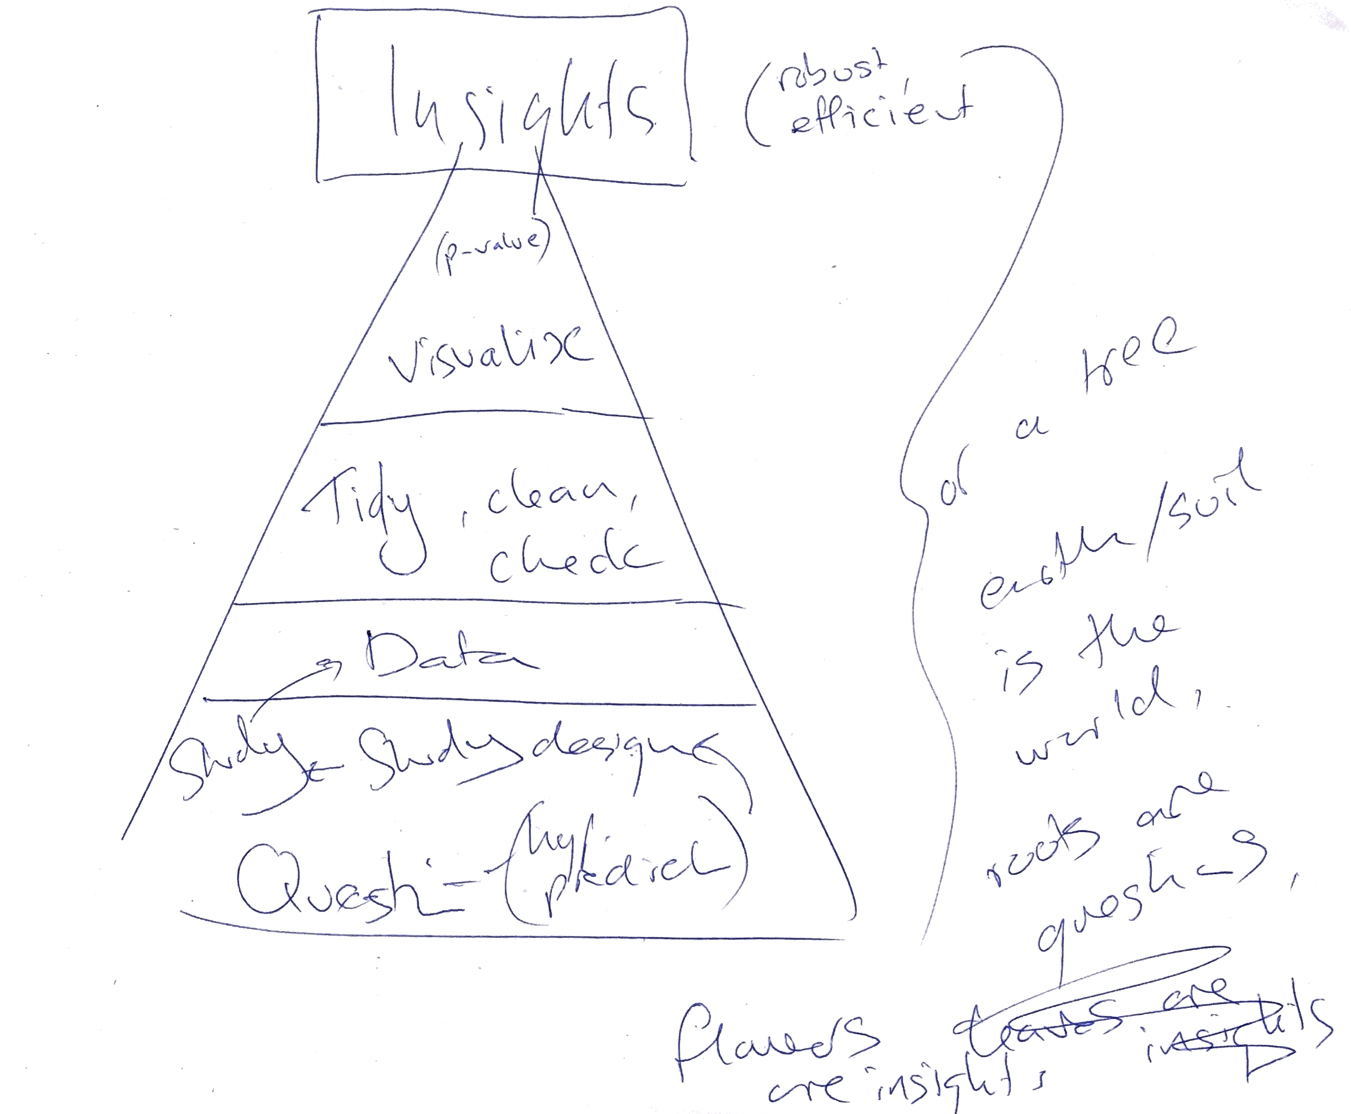 Insights
(robust,
efficient
(p-value)
Visualise
Tidy, clean,
check
Data
Study Study design
Question (hyp.
predict)
or a tree
earth/soil
is the
world,
roots are
questions,
leaves are
insights
flowers
are insights